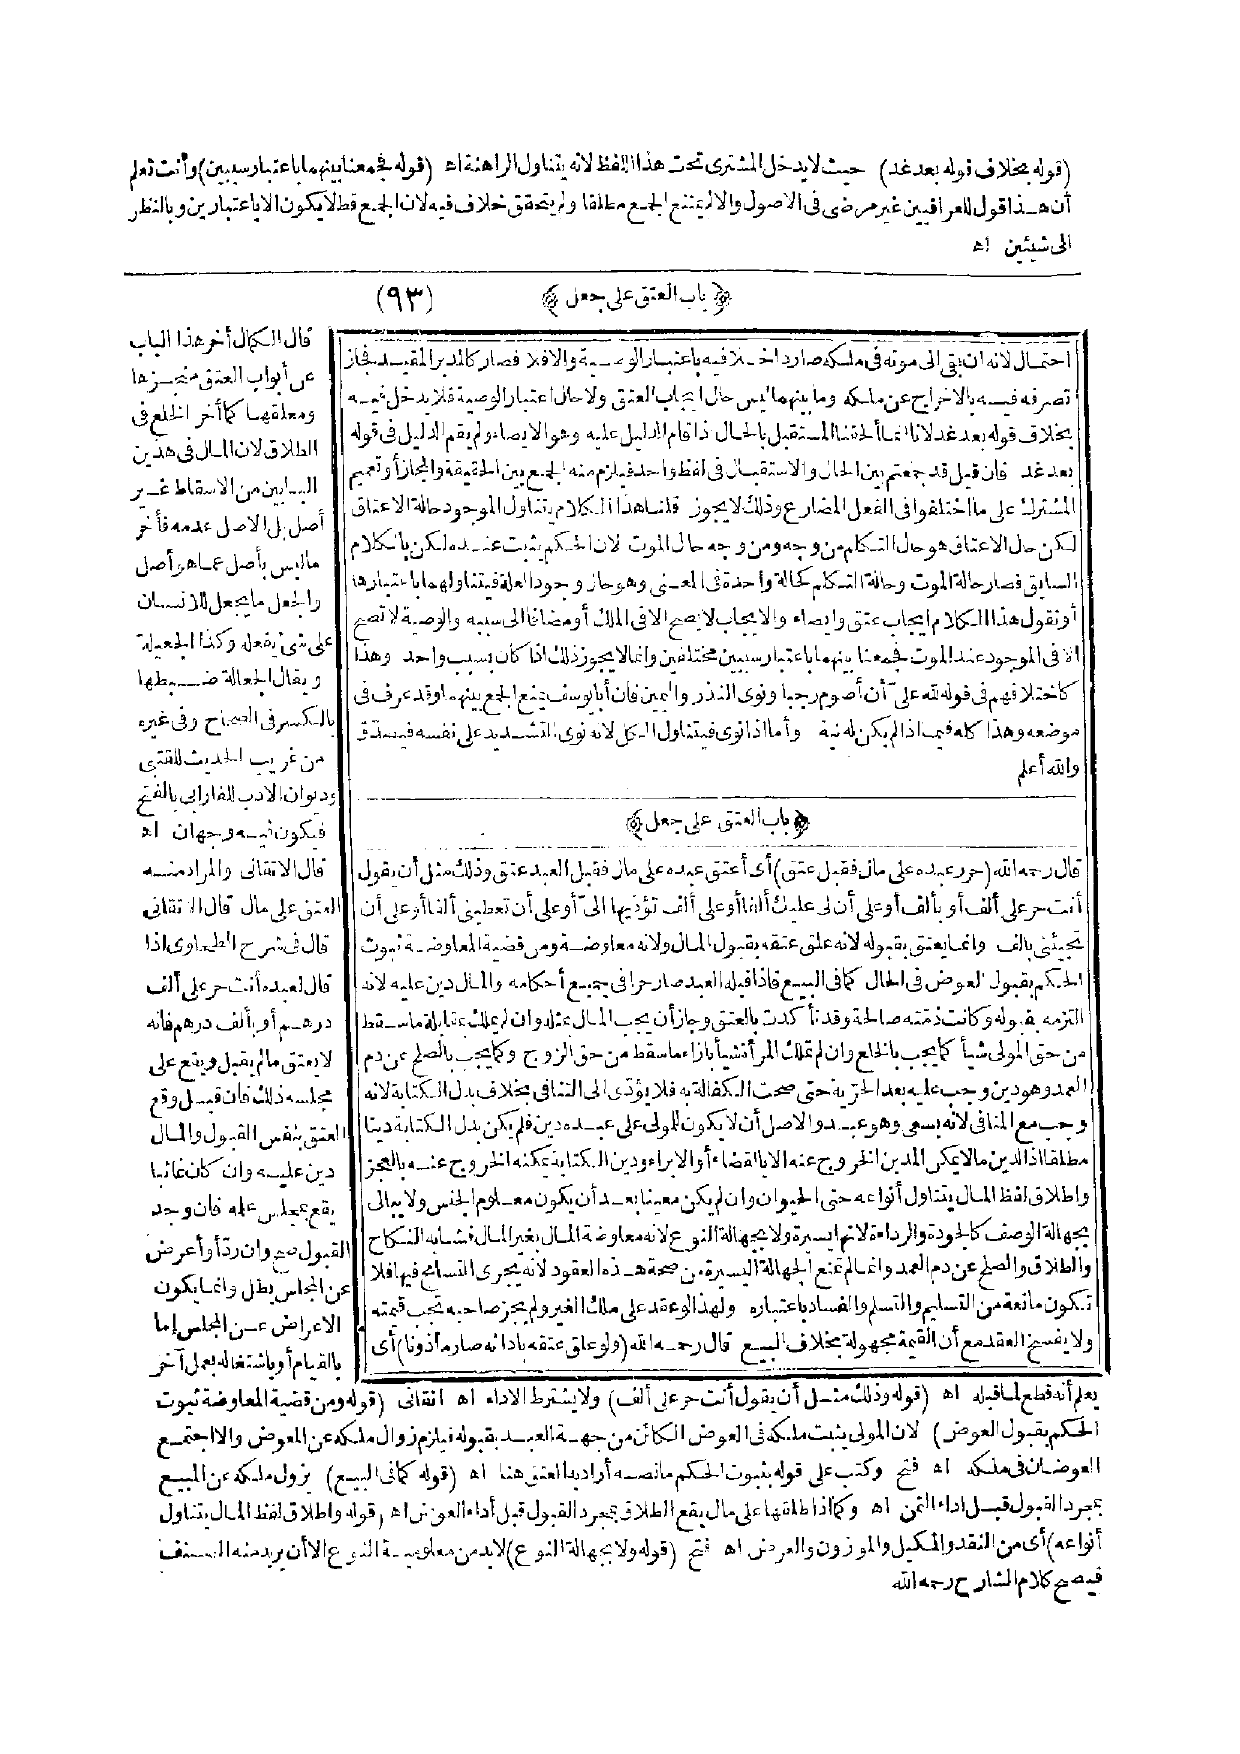 (قوله بخلاف قوله بعد غد) حيث لا يدخل المشترى تحت هذا اللفظ لانه يتناول الراهنة اه (قوله فجمعنا بينهما باعتبار سببين) وأنت تعلم
أن هذا قول للعراقيين غير مرضى فى الاصول والا لم يمتنع الجمع مطلقا ولم يتحقق خلاف فيه لان الجمع قط لا يكون الا باعتبارين وبالنظر
الى شيئين اه
﴿باب العتق على جعل﴾ (٩٣)
احتمال لانه ان بقى الى موته فى ملكه صار داخلا فيه باعتبار الوصية والا فلا فصار كالمدبر المقيد فجاز
تصرفه فيه بالاخراج عن ملكه وما بينهما ليس حال ايجاب العتق ولا حال اعتبار الوصية فلا يدخل فيه
بخلاف قوله بعد غد لانا انما ألحقنا المستقبل بالحال اذا قام الدليل عليه وهو الايصاء ولم يقم الدليل فى قوله
بعد غد فان قيل قد جمعتم بين الحال والاستقبال فى لفظ واحد فيلزم منه الجمع بين الحقيقة والمجاز أو تعميم
المشترك على ما اختلفوا فى الفعل المضارع وذلك لا يجوز قلنا هذا الكلام يتناول الموجود حالة الاعتاق
لكن حال الاعتاق هو حال التكلم من وجه ومن وجه حال الموت لان الحكم يثبت عنده لكن بالكلام
السابق فصار حالة الموت وحالة التكلم كحالة واحدة فى المعنى وهو حال وجود العلة فيتناولهما باعتبارها
أو نقول هذا الكلام ايجاب عتق وايصاء والايجاب لا يصح الا فى الملك أو مضافا الى سببه والوصية لا تصح
الا فى الموجود عند الموت فجمعنا بينهما باعتبار سببين مختلفين وانما لا يجوز ذلك اذا كان بسبب واحد وهذا
كاختلافهم فى قوله لله علىّ أن أصوم رجبا ونوى النذر واليمين فان أبا يوسف يمنع الجمع بينهما وقد عرف فى
موضعه وهذا كله فيما اذا لم يكن له نية وأما اذا نوى فيتناول الكل لانه نوى التشديد على نفسه فيصدق
والله أعلم
﴿باب العتق على جعل﴾
قال رحمه الله (حرر عبده على مال فقبل عتق) أى أعتق عبده على مال فقبل العبد عتق وذلك مثل أن يقول
أنت حر على ألف أو بألف أو على أن لى عليك ألفا أو على ألف تؤديها الىّ أو على أن تعطينى ألفا أو على أن
تجيئنى بالف وانما يعتق بقبوله لانه علق عتقه بقبول المال ولانه معاوضة ومن قضية المعاوضة ثبوت
الحكم بقبول العوض فى الحال كما فى البيع فاذا قبله العبد صار حرا فى جميع أحكامه والمال دين عليه لانه
التزمه بقبوله وكانت ذمته صالحة وقد تأكدت بالعتق وجاز أن يجب المال عليه وان لم يملك بمقابلة ما سقط
من حق المولى شيأ كما يجب بالخلع وان لم تملك المرأة شيأ بازاء ما سقط من حق الزوج وكما يجب بالصلح عن دم
العمد وهو دين وجب عليه بعد الحرية حتى صحت الكفالة به فلا يؤدّى الى التنافى بخلاف بدل الكتابة لانه
وجب مع المنافى لانه يسعى وهو عبد والاصل أن لا يكون للمولى على عبده دين فلم يكن بدل الكتابة دينا
مطلقا اذ الدين ما لا يمكن المدين الخروج عنه الا بالقضاء أو الابراء ودين الكتابة يمكنه الخروج عنه بالعجز
واطلاق لفظ المال يتناول أنواعه حتى الحيوان وان لم يكن معينا بعد أن يكون معلوم الجنس ولا يبالى
بجهالة الوصف كالجودة والرداءة لانها يسيرة ولا بجهالة النوع لانه معاوضة المال بغير المال فشابه النكاح
والطلاق والصلح عن دم العمد وانما لم تمنع الجهالة اليسيرة من صحة هذه العقود لانه يجرى التسامح فيها فلا
تكون مانعة من التسليم والتسلم والفساد باعتباره ولهذا لو عقد على ملك الغير ولم يجز صاحبه تجب قيمته
ولا يفسخ العقد مع أن القيمة مجهولة بخلاف البيع قال رحمه الله (ولو علق عتقه بادائه صار مأذونا) أى
قال الكمال أخر هذا الباب
عن أبواب العتق منجزها
ومعلقها كما أخر الخلع فى
الطلاق لان المال فى هذين
البابين من الاسقاط غير
أصل بل الاصل عدمه فأخر
ما ليس بأصل عما هو أصل
والجعل ما يجعل للانسان
على شئ يفعله وكذا الجعيلة
ويقال الجعالة ضبطها
بالكسر فى الصحاح وفى غيره
من غريب الحديث للقتبى
وديوان الادب للفارابى بالفتح
فيكون فيه وجهان اه
قال الاتقانى والمراد منه
العتق على مال قال الاتقانى
قال فى شرح الطحاوى اذا
قال لعبده أنت حر على ألف
درهم أو بألف درهم فانه
لا يعتق ما لم يقبل ويقع على
مجلسه ذلك فان قبل وقع
العتق بنفس القبول والمال
دين عليه وان كان غائبا
يقع بمجلس علمه فان وجد
القبول صح وان ردّ أو أعرض
عن المجلس بطل وانما يكون
الاعراض عن المجلس إما
بالقيام أو باشتغاله بعمل آخر
يعلم أنه قطع لما قبله اه (قوله وذلك مثل أن يقول أنت حر على ألف) ولا يشترط الاداء اه اتقانى (قوله ومن قضية المعاوضة ثبوت
الحكم بقبول العوض) لان المولى يثبت ملكه فى العوض الكائن من جهة العبد بقبوله فيلزم زوال ملكه عن المعوض والا اجتمع
العوضان فى ملكه اه فتح وكتب على قوله بثبوت الحكم ما نصه أراد به العتق هنا اه (قوله كما فى البيع) يزول ملكه عن المبيع
بمجرد القبول قبل اداء الثمن اه وكما اذا طلقها على مال يقع الطلاق بمجرد القبول قبل أداء العوض اه (قوله واطلاق لفظ المال يتناول
أنواعه) أى من النقد والمكيل والموزون والعرض اه فتح (قوله ولا بجهالة النوع) لا بد من معلومية النوع الا أن يريد منه الصنف
فيصح كلام الشارح رحمه الله